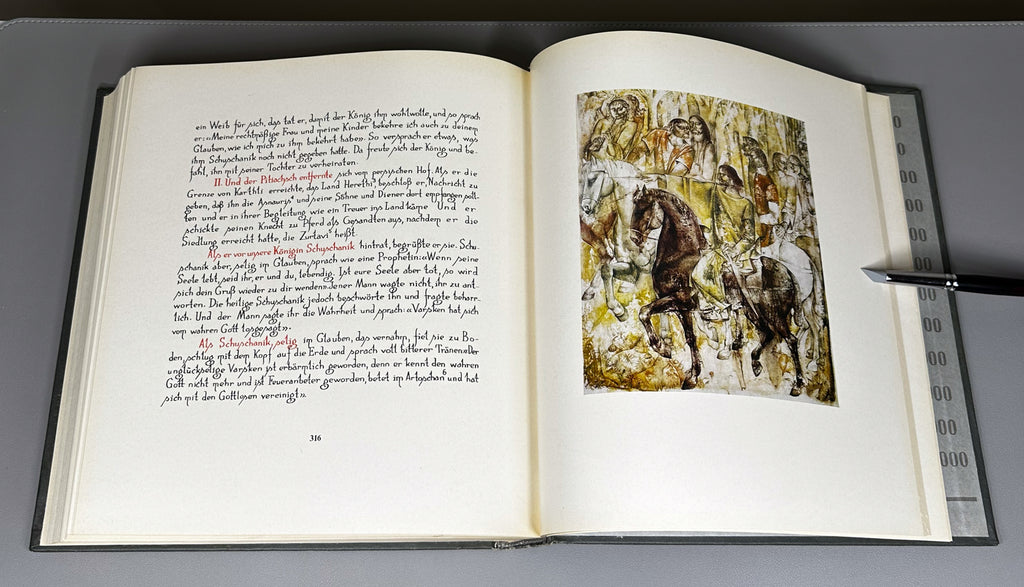 ein Weib für sich, das tat er, damit der König ihm wohlwolle, und so sprach
er: «Meine rechtmäßige Frau und meine Kinder bekehre ich auch zu deinem
Glauben, wie ich mich zu ihm bekehrt habe». So versprach er etwas, was
ihm Schuschanik noch nicht gegeben hatte. Da freute sich der König und be-
fahl, ihn mit seiner Tochter zu verheiraten.
II. Und der Pitiachsch entfernte sich vom persischen Hof. Als er die
Grenze von Karthli erreichte, das Land Herethi, beschloß er, Nachricht zu
geben, daß ihn die Asnaurys und seine Söhne und Diener dort empfangen soll-
ten und er in ihrer Begleitung wie ein Treuer ins Land käme. Und er
schickte seinen Knecht zu Pferd als Gesandten aus, nachdem er die
Siedlung erreicht hatte, die Zurtavi heißt.
Als er vor unsere Königin Schuschanik hintrat, begrüßte er sie. Schu-
schanik aber, selig im Glauben, sprach wie eine Prophetin: «Wenn seine
Seele lebt, seid ihr, er und du, lebendig. Ist eure Seele aber tot, so wird
sich dein Gruß wieder zu dir wenden». Jener Mann wagte nicht, ihr zu ant-
worten. Die heilige Schuschanik jedoch beschwörte ihn und fragte beharr-
lich. Und der Mann sagte ihr die Wahrheit und sprach: «Varsken hat sich
vom wahren Gott losgesagt».
Als Schuschanik, selig im Glauben, das vernahm, fiel sie zu Bo-
den, schlug mit dem Kopf auf die Erde und sprach voll bitterer Tränen: «Der
unglückselige Varsken ist erbärmlich geworden, denn er kennt den wahren
Gott nicht mehr und ist Feueranbeter geworden, betet im Artoschan⁶ und hat
sich mit den Gottlosen vereinigt».
316
0
00
00
00
00
00
00
00
000